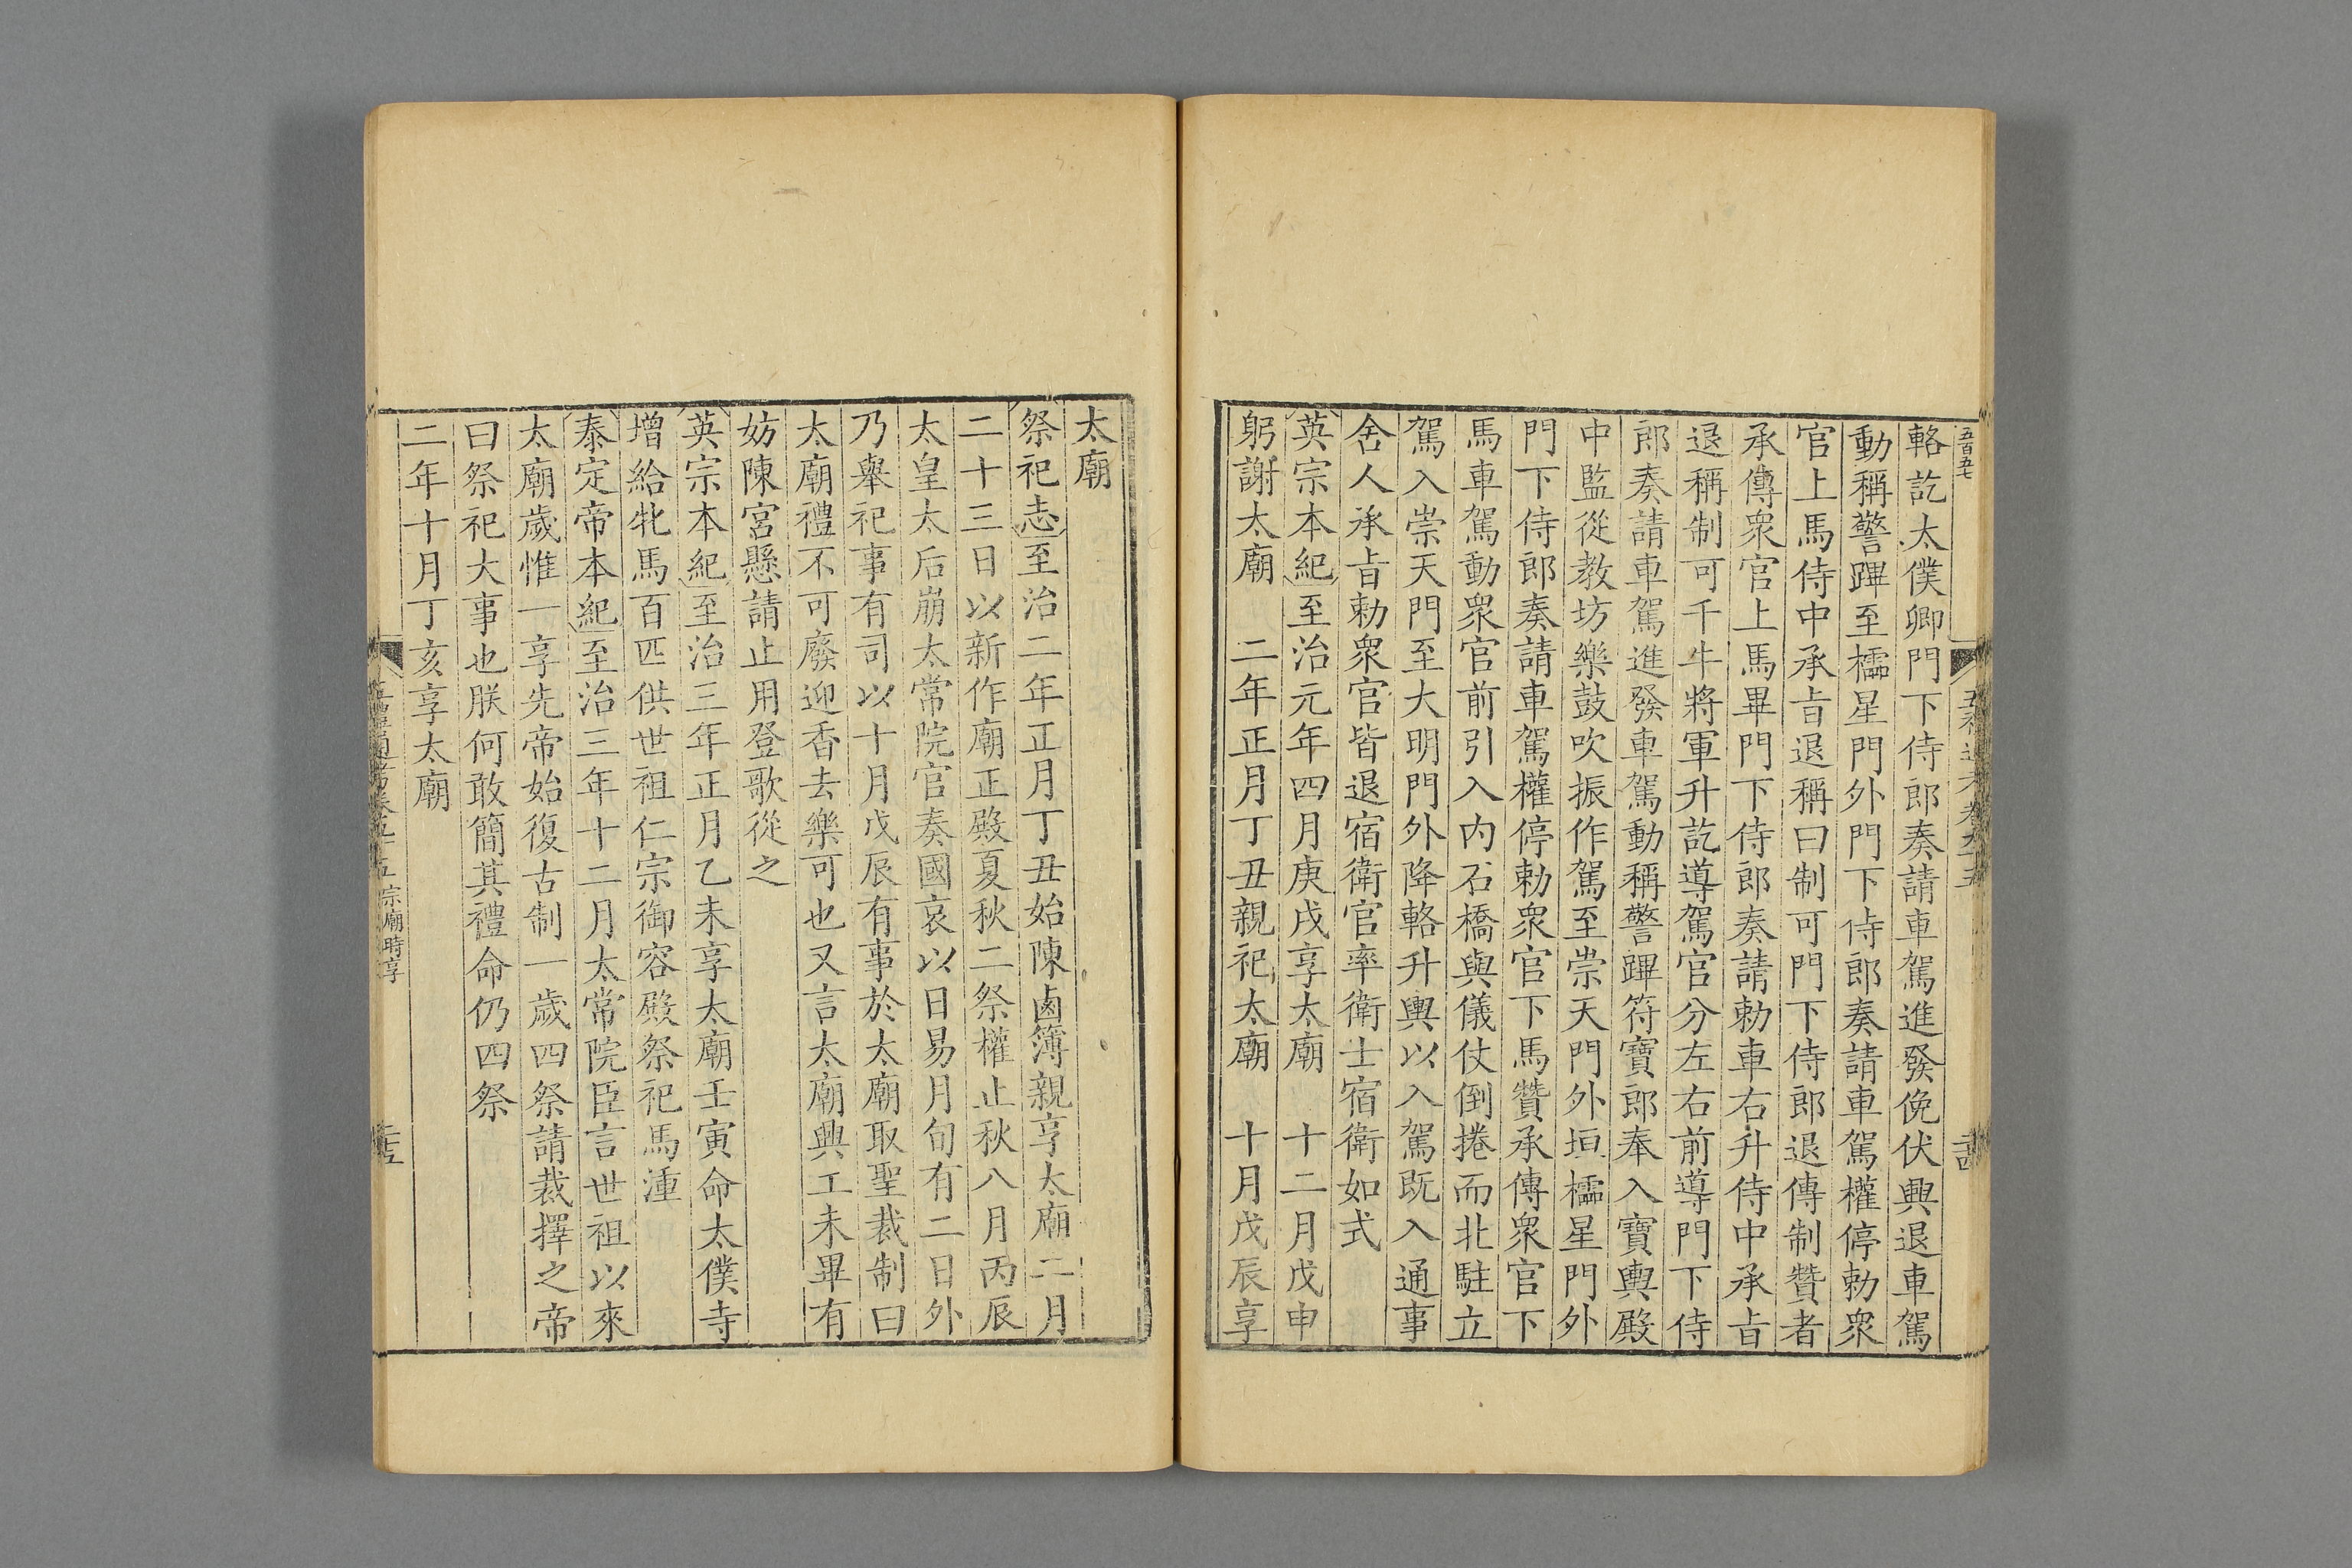 五百五七
輅訖太僕卿門下侍郎奏請車駕進發俛伏興退車駕
動稱警蹕至櫺星門外門下侍郎奏請車駕權停勅衆
官上馬侍中承旨退稱曰制可門下侍郎退傳制贊者
承傳衆官上馬畢門下侍郎奏請勅車右升侍中承旨
退稱制可千牛將軍升訖導駕官分左右前導門下侍
郎奏請車駕進發車駕動稱警蹕符寶郎奉入寶輿殿
中監從教坊樂鼓吹振作駕至崇天門外垣櫺星門外
門下侍郎奏請車駕權停勅衆官下馬贊承傳衆官下
馬車駕動衆官前引入內石橋與儀仗倒捲而北駐立
駕入崇天門至大明門外降輅升輿以入駕既入通事
舍人承旨勅衆官皆退宿衛官率衛士宿衛如式
英宗本紀至治元年四月庚戌享太廟 十二月戊申
躬謝太廟 二年正月丁丑親祀太廟 十月戊辰享
太廟
祭祀志至治二年正月丁丑始陳鹵簿親享太廟二月
二十三日以新作廟正殿夏秋二祭權止秋八月丙辰
太皇太后崩太常院官奏國哀以日易月旬有二日外
乃舉祀事有司以十月戊辰有事於太廟取聖裁制曰
太廟禮不可廢迎香去樂可也又言太廟興工未畢有
妨陳宮懸請止用登歌從之
英宗本紀至治三年正月乙未享太廟壬寅命太僕寺
增給牝馬百匹供世祖仁宗御容殿祭祀馬湩
泰定帝本紀至治三年十二月太常院臣言世祖以來
太廟歲惟一享先帝始復古制一歲四祭請裁擇之帝
曰祭祀大事也朕何敢簡其禮命仍四祭
二年十月丁亥享太廟
宗廟時享